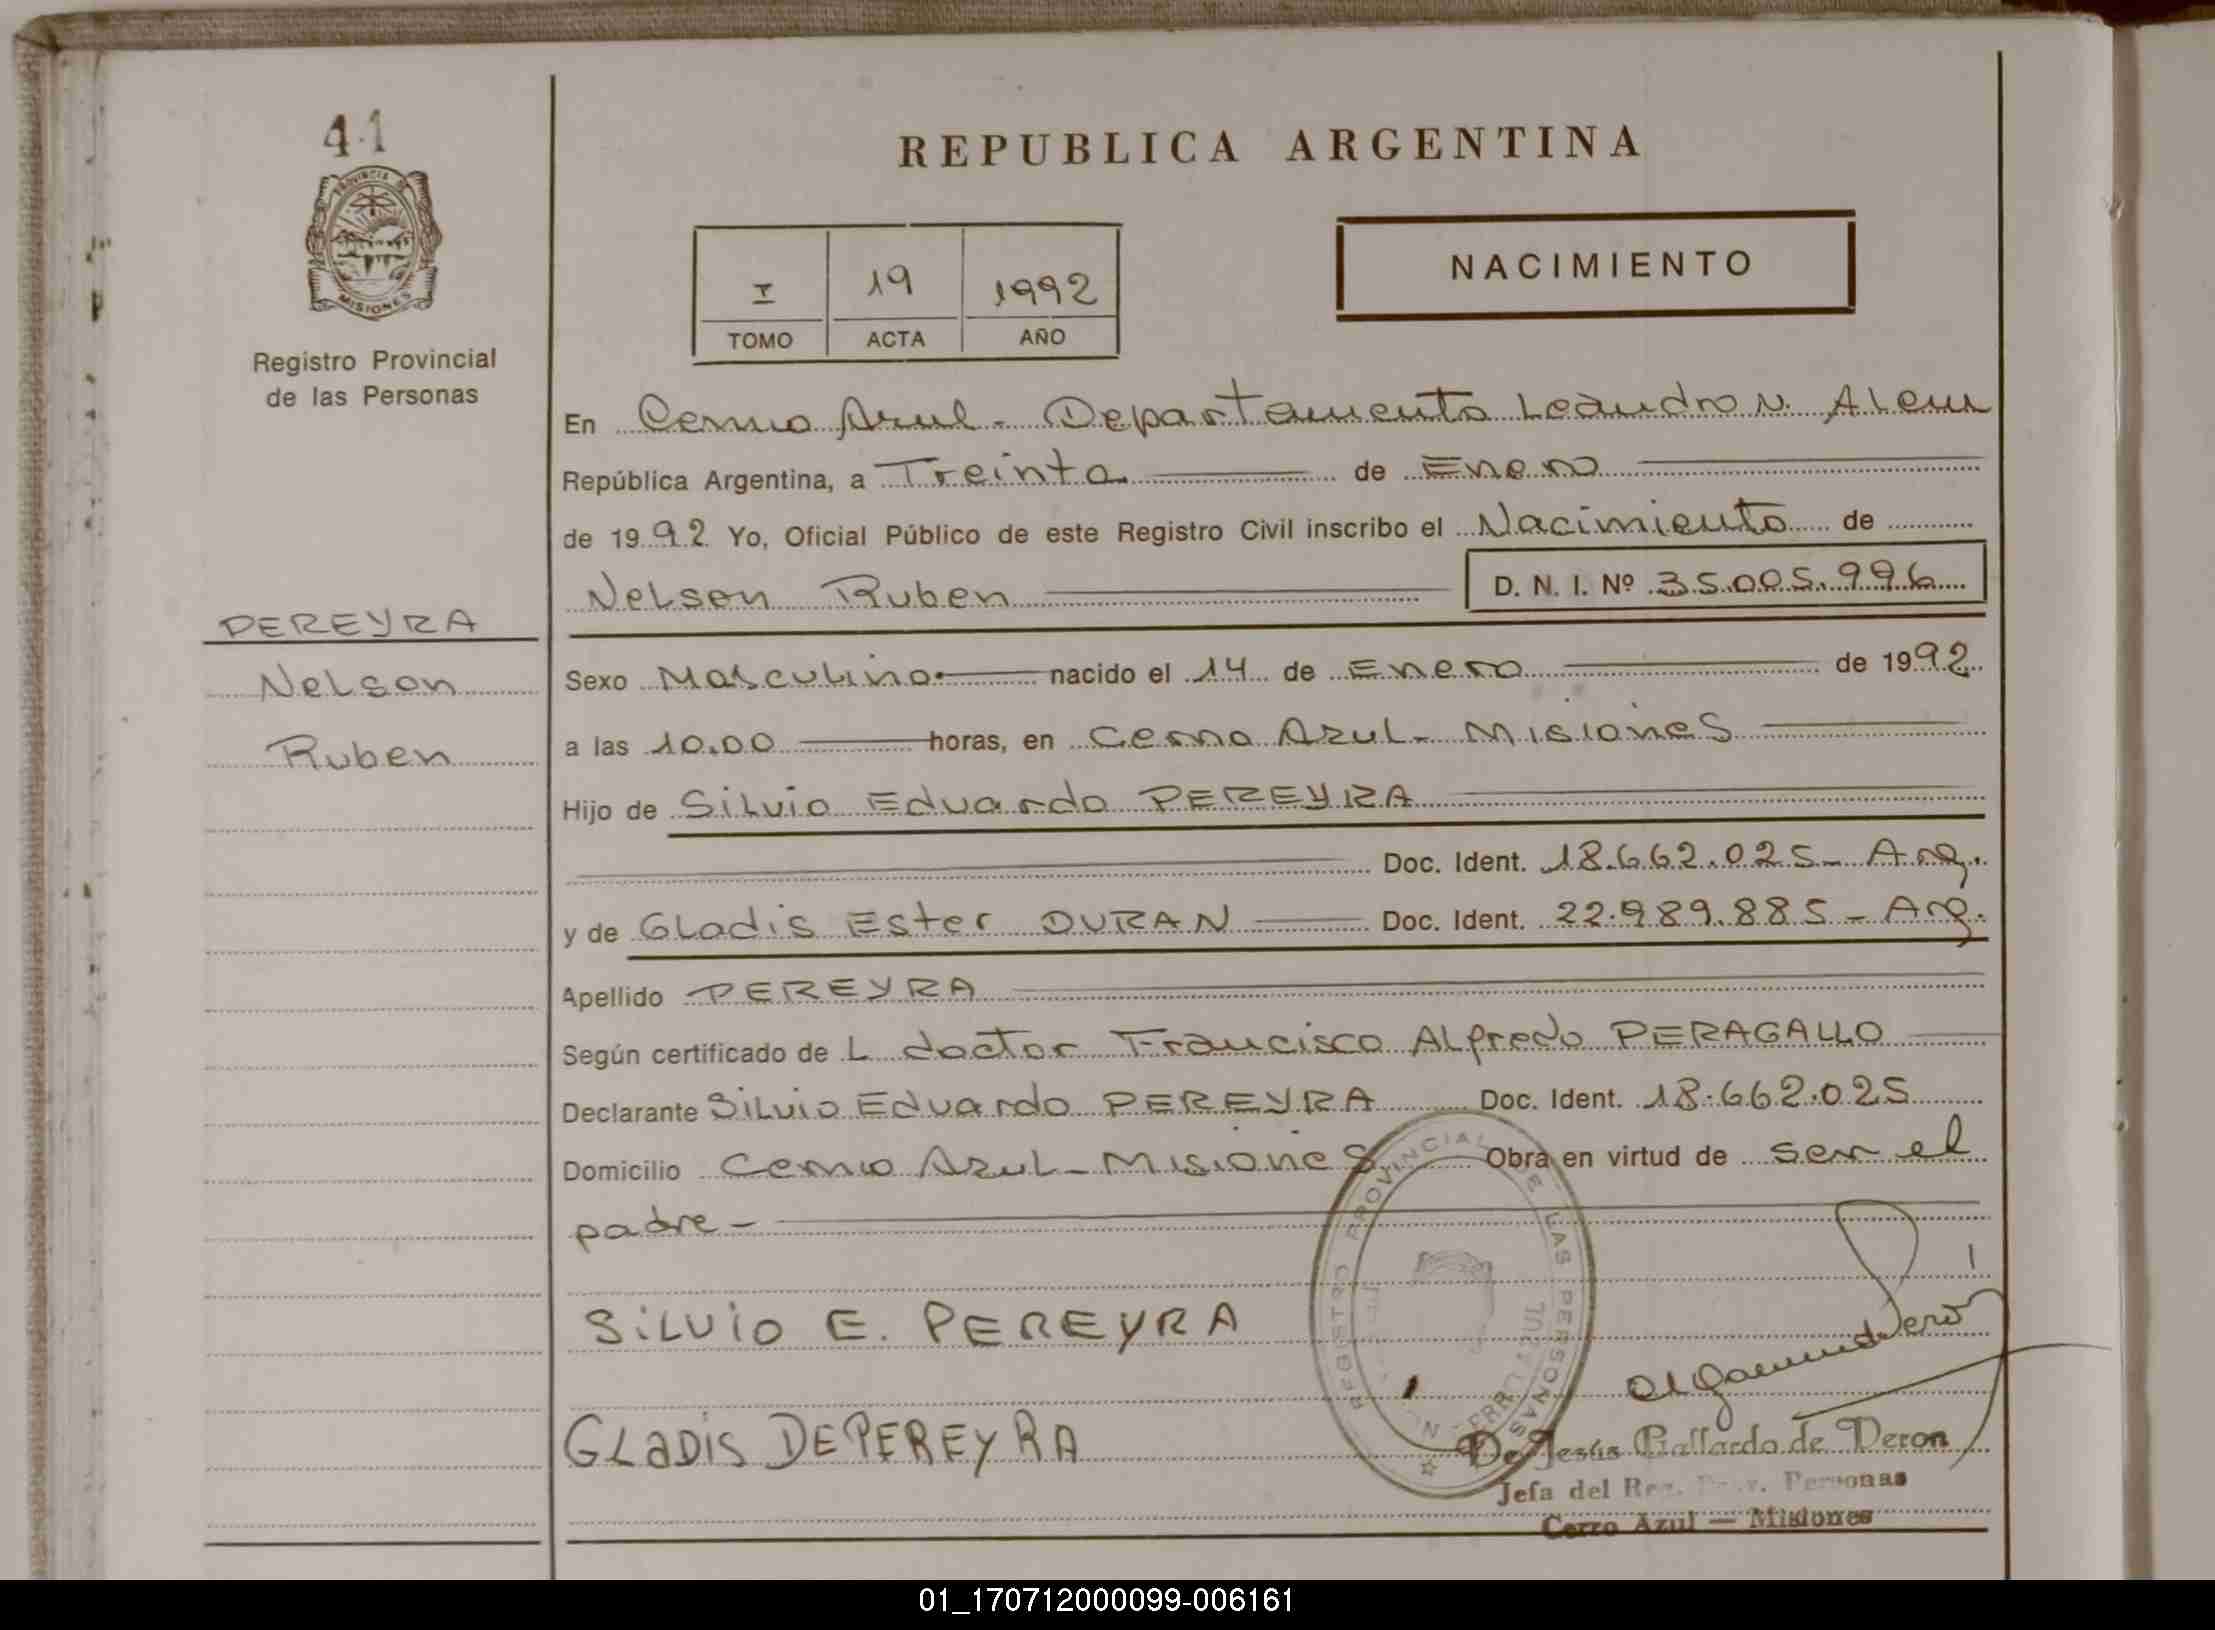 41
PROVINCIA DE
MISIONES
Registro Provincial
de las Personas
PEREYRA
Nelson
Ruben
REPUBLICA ARGENTINA
I 19 1992
TOMO ACTA AÑO
NACIMIENTO
En Cerro Azul - Departamento Leandro N. Alem
República Argentina, a Treinta de Enero
de 1992 Yo, Oficial Público de este Registro Civil inscribo el Nacimiento de
Nelson Ruben D. N. I. Nº 35.005.996
Sexo Masculino. nacido el 14 de Enero de 1992
a las 10.00 horas, en Cerro Azul - Misiones
Hijo de Silvio Eduardo PEREYRA
Doc. Ident. 18.662.025 - Arg.
y de Gladis Ester DURAN Doc. Ident. 22.989.885 - Arg.
Apellido PEREYRA
Según certificado de L doctor Francisco Alfredo PERAGALLO
Declarante Silvio Eduardo PEREYRA Doc. Ident. 18.662.025
Domicilio Cerro Azul - Misiones Obra en virtud de ser el
padre -
REGISTRO PROVINCIAL DE LAS PERSONAS
SILVIO E. PEREYRA
GLADIS DE PEREYRA
De Jesús Gallardo de Deron
Jefa del Reg. Prov. Personas
Cerro Azul — Misiones
01_170712000099-006161